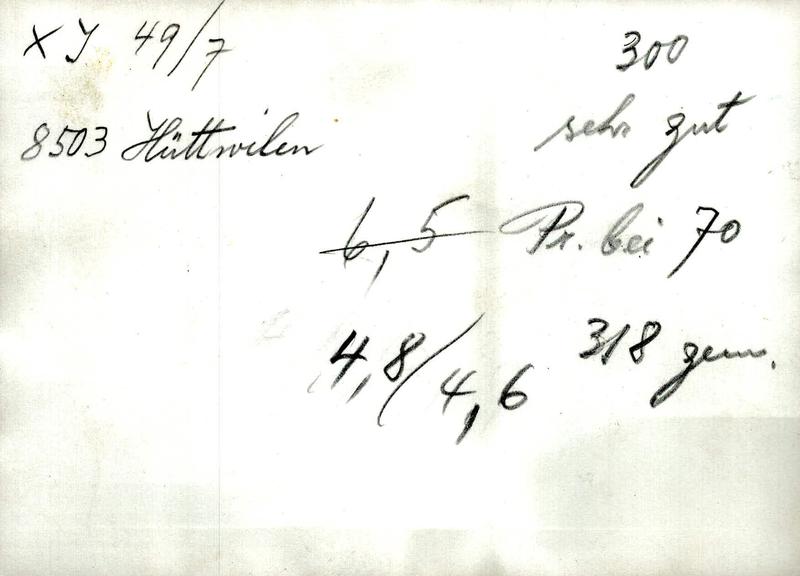 X Y 49/7
300
8503 Hüttwilen
sehr gut
6,5 Pr. bei 70
4,8/4,6
318 gem.